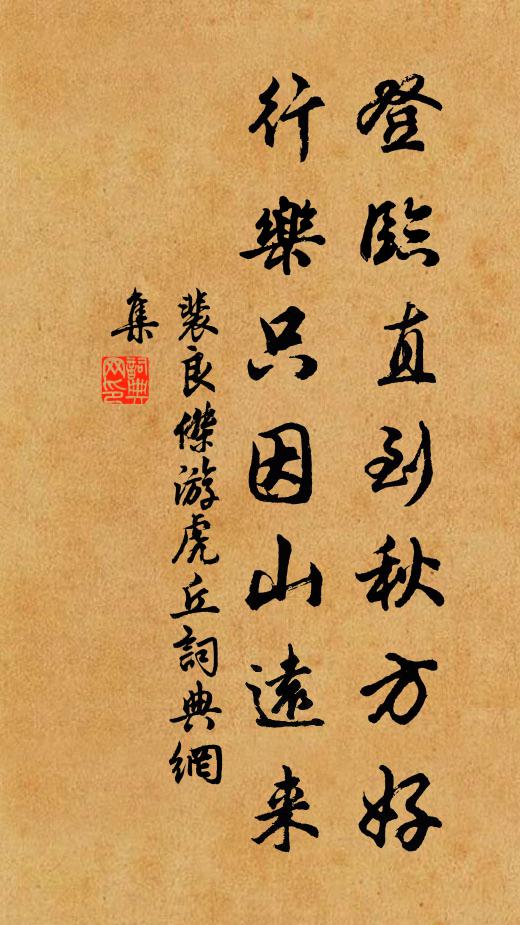 登臨直到秋方好
行樂只因山遠来
裴良傑游虎丘詞典網
集
詞典
网印